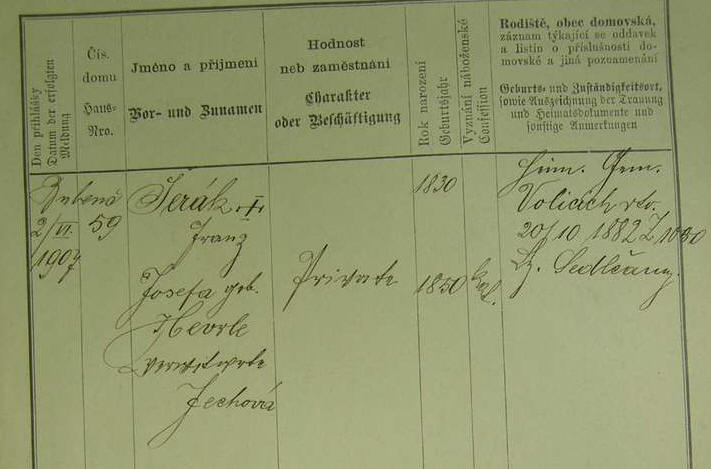 Den přihlášky
Datum der erfolgten
Meldung
Čís.
domu
Haus-
Nro.
Jméno a příjmení
Vor- und Zunamen
Hodnost
neb zaměstnání
Charakter
oder Beschäftigung
Rok narození
Geburtsjahr
Vyznání náboženské
Confession
Rodiště, obec domovská,
záznam týkající se oddavek
a listin o příslušnosti do-
movské a jiná poznamenání
Geburts- und Zuständigkeitsort,
sowie Auszeichnung der Trauung
und Heimatsdokumente und
sonstige Anmerkungen
2/VI.
1907
59
Franz
Josefa geb.
Hevrle
Jechová
Private
1830
1850
kat.
Heim. Gem.
20/10 1882 Z 1080
Bz. Sedlčany.